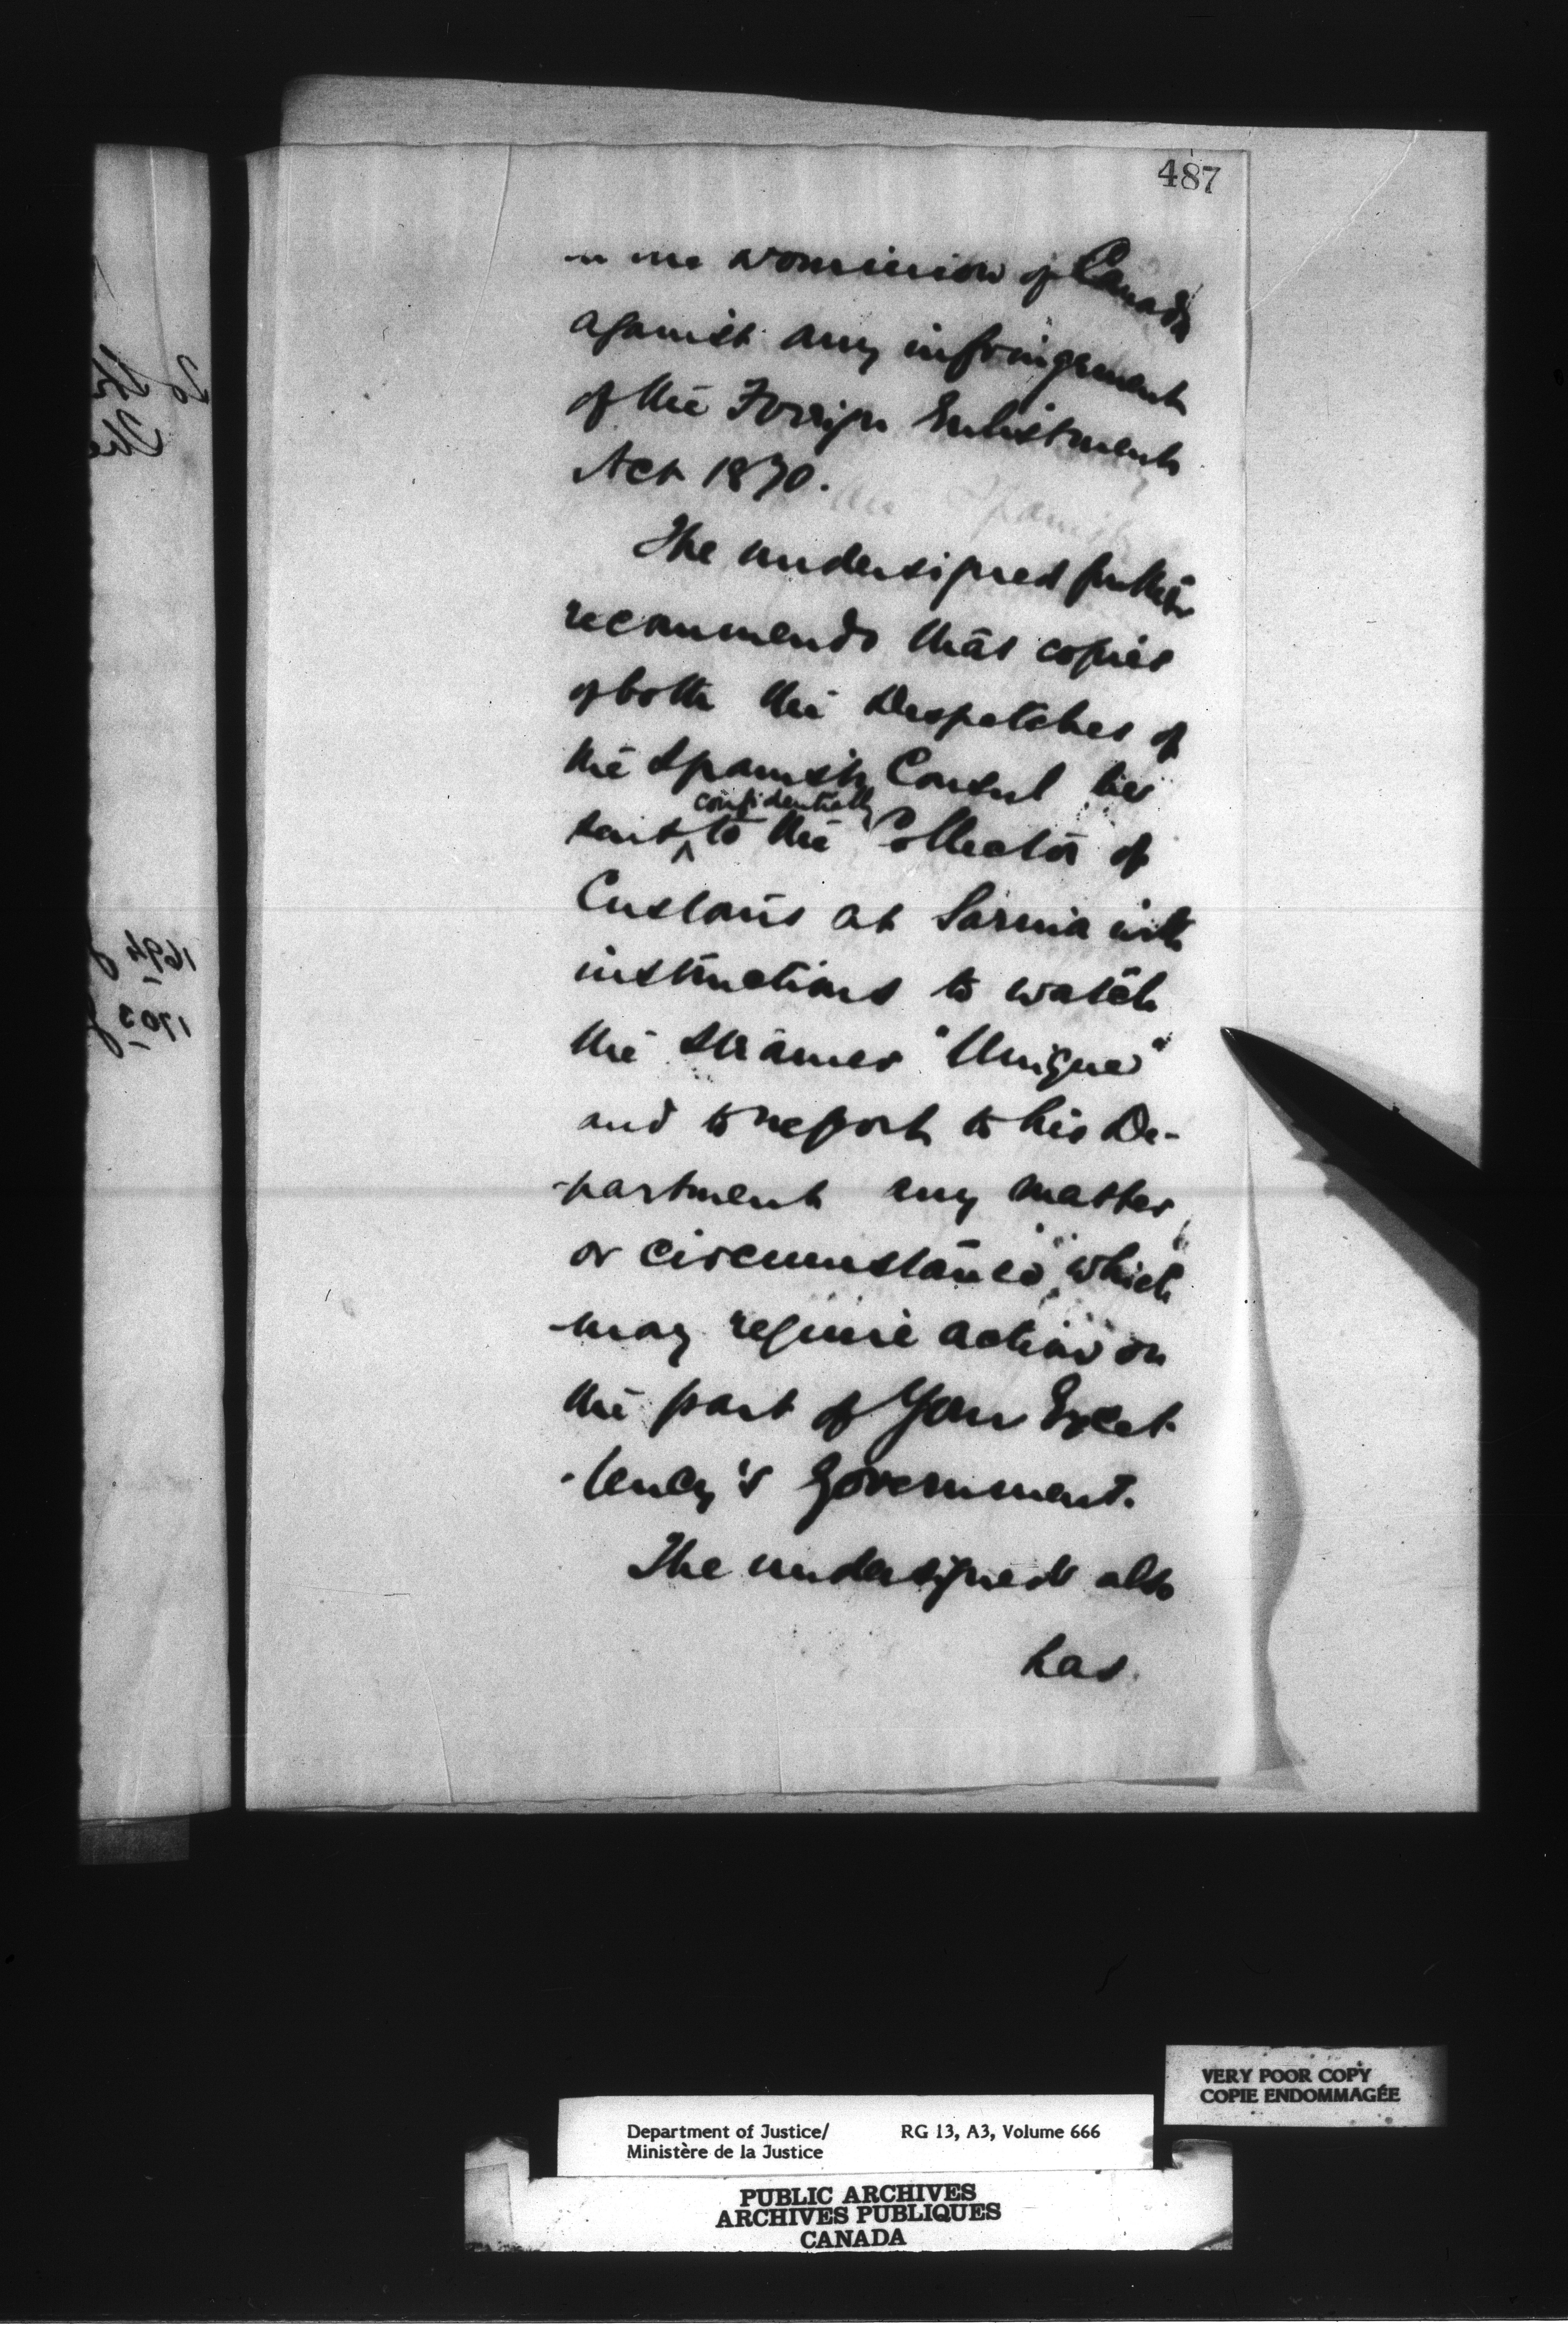 487
in the Dominion of Canada
against any infringement
of the Foreign Enlistment
Act 1870.
The undersigned further
recommends that copies
of both the Despatches of
the Spanish Consul be
confidentially
sent ^ to the Collector of
Customs at Sarnia with
instructions to watch
the Steamer "Unique"
and to report to his De-
-partment any matter
or circumstance which
may require action on
the part of Your Excel-
-lency's Government.
The undersigned also
has
1694
1703
VERY POOR COPY
COPIE ENDOMMAGÉE
Department of Justice/ RG 13, A3, Volume 666
Ministère de la Justice
PUBLIC ARCHIVES
ARCHIVES PUBLIQUES
CANADA